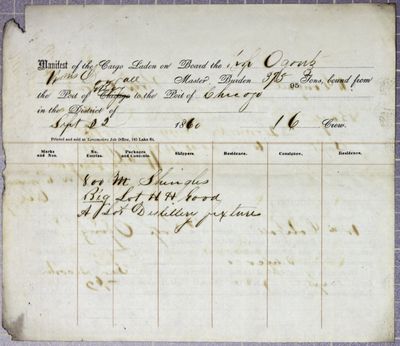 Manifest of the Cargo Laden on Board the Schr Ogontz
Wm Dougall Master Burden 375 95 Tons, bound from
the Port of Chicago to the Port of Chicago
in the District of
Sept 22 1860 16 Crew.
Printed and sold at Locomotive Job Office, 145 Lake St.
Marks and Nos. No. Entries. Packages and Contents. Shippers. Residence. Consignee. Residence.
800 M Shingles
Big Lot H H Good
A Lot Distillery fixture